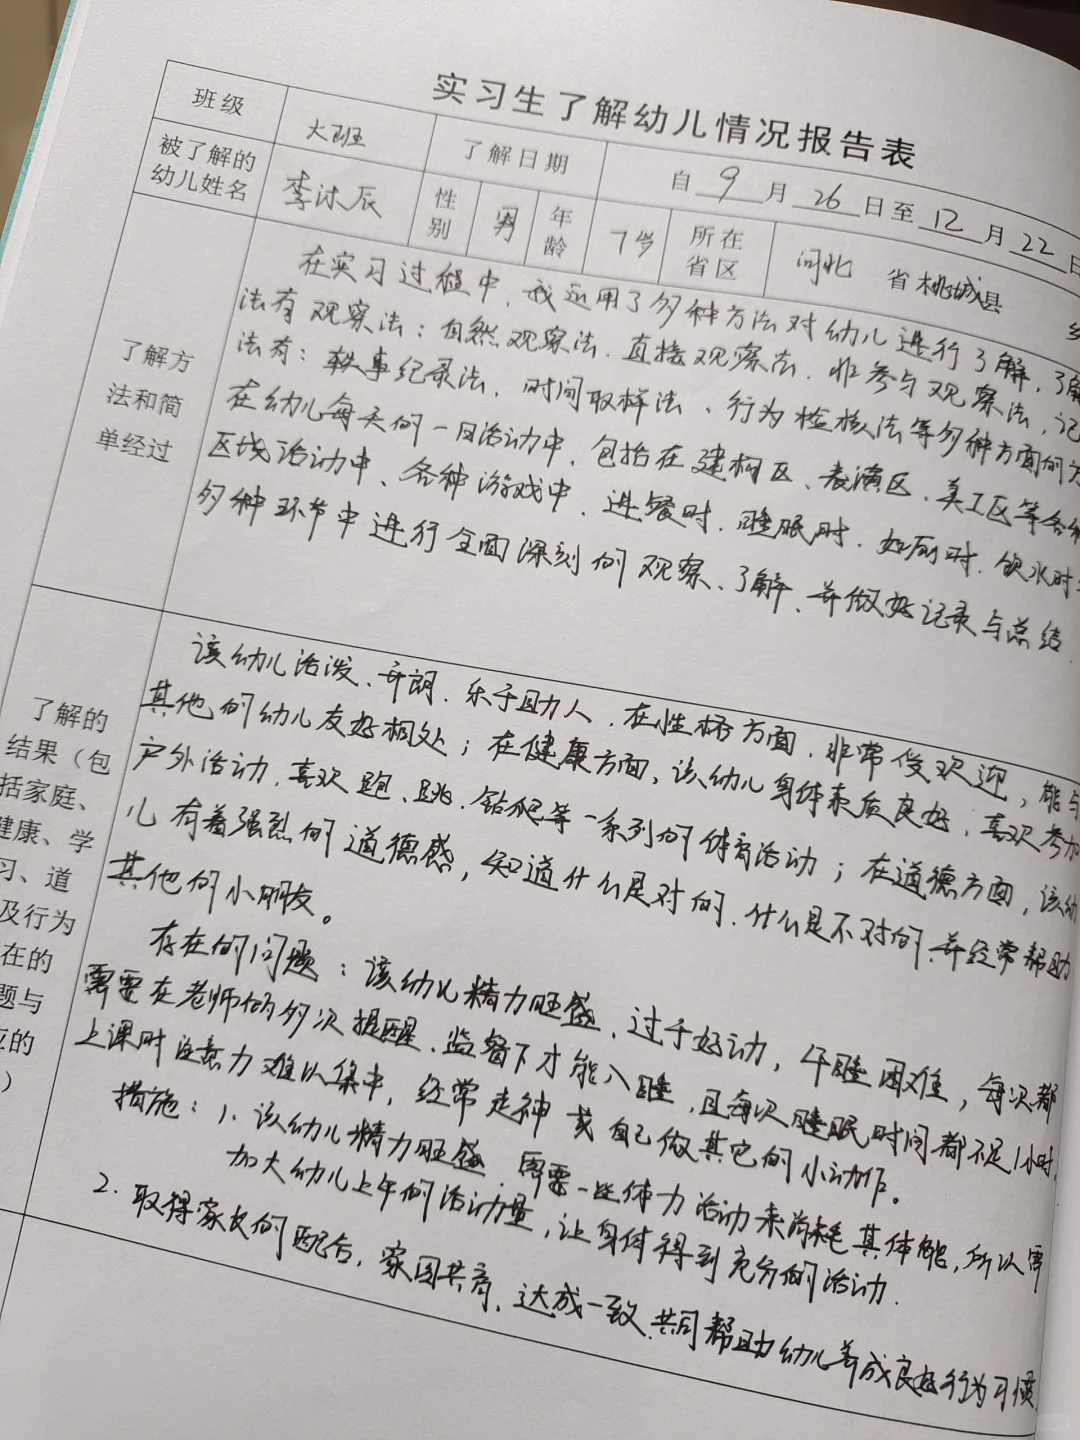 实习生了解幼儿情况报告表
班级 大班 了解日期 自 9 月 26 日至 12 月 22 日
被了解的幼儿姓名 李沐辰 性别 男 年龄 7岁 所在省区 河北 省 桃城县
了解方法和简单经过
在实习过程中,我运用了多种方法对幼儿进行了解,了解
法有观察法:自然观察法、直接观察法、非参与观察法,记
法有:轶事纪录法、时间取样法、行为检核法等多种方面的方
在幼儿每天的一日活动中,包括在建构区、表演区、美工区等各种
区域活动中、各种游戏中、进餐时、睡眠时、如厕时、饮水时
多种环节中进行全面深刻的观察、了解、并做好记录与总结
了解的
结果(包
括家庭、
健康、学
习、道
及行为
在的
题与
应的
)
该幼儿活泼、开朗、乐于助人,在性格方面,非常受欢迎,能与
其他的幼儿友好相处;在健康方面,该幼儿身体素质良好,喜欢参加
户外活动,喜欢跑、跳、钻爬等一系列的体育活动;在道德方面,该幼
儿有着强烈的道德感,知道什么是对的、什么是不对的,并经常帮助
其他的小朋友。
存在的问题:该幼儿精力旺盛,过于好动,午睡困难,每次都
需要在老师的多次提醒、监督下才能入睡,且每次睡眠时间都不足1小时,
上课时注意力难以集中,经常走神或自己做其它的小动作。
措施:1、该幼儿精力旺盛,需要一些体力活动来消耗其体能,所以需
加大幼儿上午的活动量,让身体得到充分的活动.
2.取得家长的配合,家园共育,达成一致,共同帮助幼儿养成良好行为习惯.